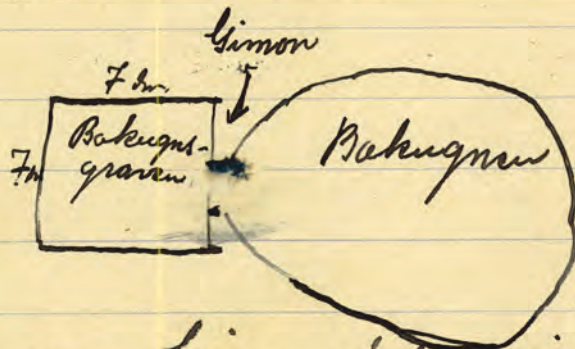 Gimon
7 dm.
Bakugns-
graven
7 dm
Bakugnen